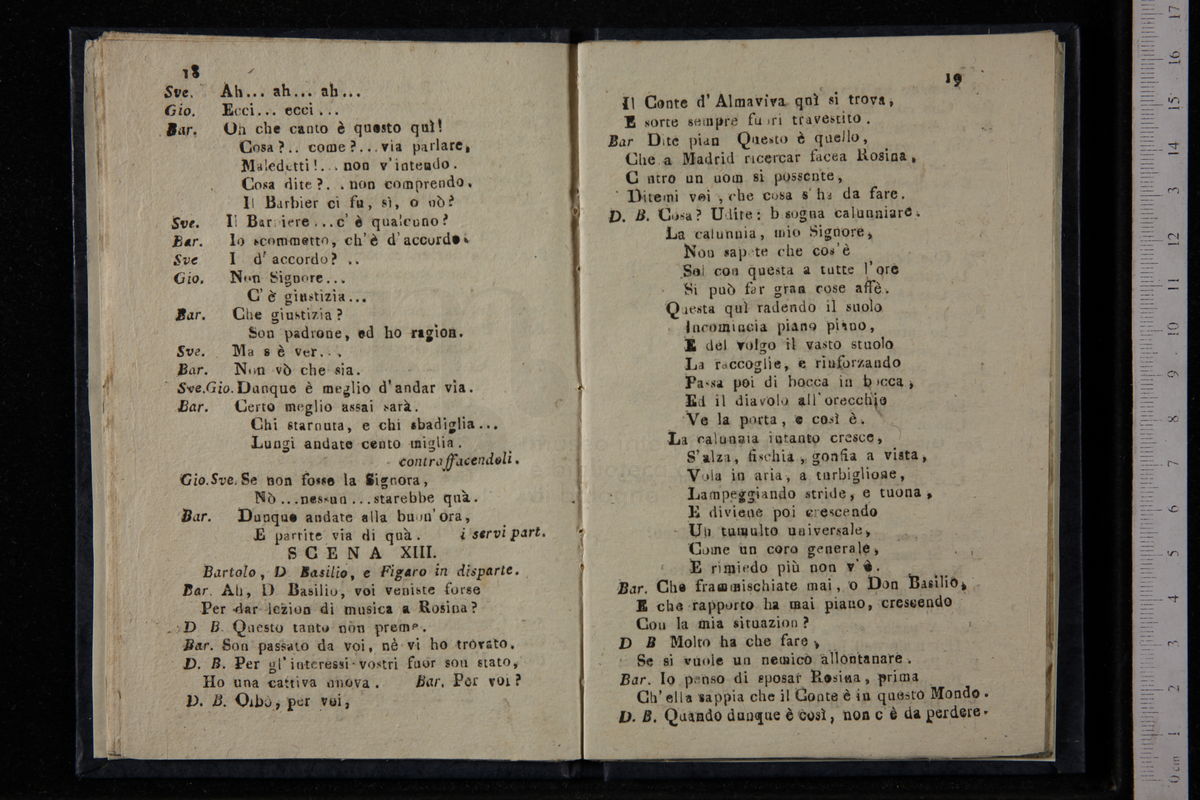 18
Sve. Ah... ah... ah...
Gio. Ecci... ecci...
Bar. Oh che canto è questo quì!
Cosa?.. come?...via parlare,
Maledetti!...non v'intendo.
Cosa dite?...non comprendo.
Il Barbier ci fu, sì, o nò?
Sve. Il Barbiere...c'è qualcuno?
Bar. Io scommetto, ch'è d'accordo.
Sve I d'accordo? ..
Gio. Non Signore...
C'è giustizia...
Bar. Che giustizia?
Son padrone, ed ho ragion.
Sve. Ma s è ver...
Bar. Non vò che sia.
Sve.Gio. Dunque è meglio d'andar via.
Bar. Certo meglio assai sarà.
Chi starnuta, e chi sbadiglia...
Lungi andate cento miglia.
contraffacendoli.
Gio.Sve. Se non fosse la Signora,
Nò...nessun...starebbe quà.
Bar. Dunque andate alla buon'ora,
E partite via di quà. i servi part.
SCENA XIII.
Bartolo, D Basilio, e Figaro in disparte.
Bar. Ah, D Basilio, voi veniste forse
Per dar lezion di musica a Rosina?
D B. Questo tanto non preme.
Bar. Son passato da voi, nè vi ho trovato.
D. B. Per gl'interessi vostri fuor son stato,
Ho una cattiva nuova. Bar. Per voi?
D. B. Oibò, per voi,
19
Il Conte d'Almaviva quì si trova,
E sorte sempre fuori travestito.
Bar Dite pian Questo è quello,
Che a Madrid ricercar facea Rosina,
C ntro un uom si possente,
Ditemi voi, che cosa s'ha da fare.
D. B. Cosa? Udite: b sogna calunniare.
La calunnia, mio Signore,
Non sapete che cos'è
Sol con questa a tutte l'ore
Si può far gran cose affè.
Questa quì radendo il suolo
Incomincia piano piano,
E del volgo il vasto stuolo
La raccoglie, e rinforzando
Passa poi di bocca in bocca,
Ed il diavolo all'orecchio
Ve la porta, e così è.
La calunnia intanto cresce,
S'alza, fischia, gonfia a vista,
Vola in aria, a turbiglione,
Lampeggiando stride, e tuona,
E diviene poi crescendo
Un tumulto universale,
Come un coro generale,
E rimiedo più non v'è.
Bar. Che frammischiate mai, o Don Basilio,
E che rapporto ha mai piano, crescendo
Con la mia situazion?
D B Molto ha che fare,
Se si vuole un nemico allontanare.
Bar. Io penso di sposar Rosina, prima
Ch'ella sappia che il Conte è in questo Mondo.
D. B. Quando dunque è così, non c è da perdere.